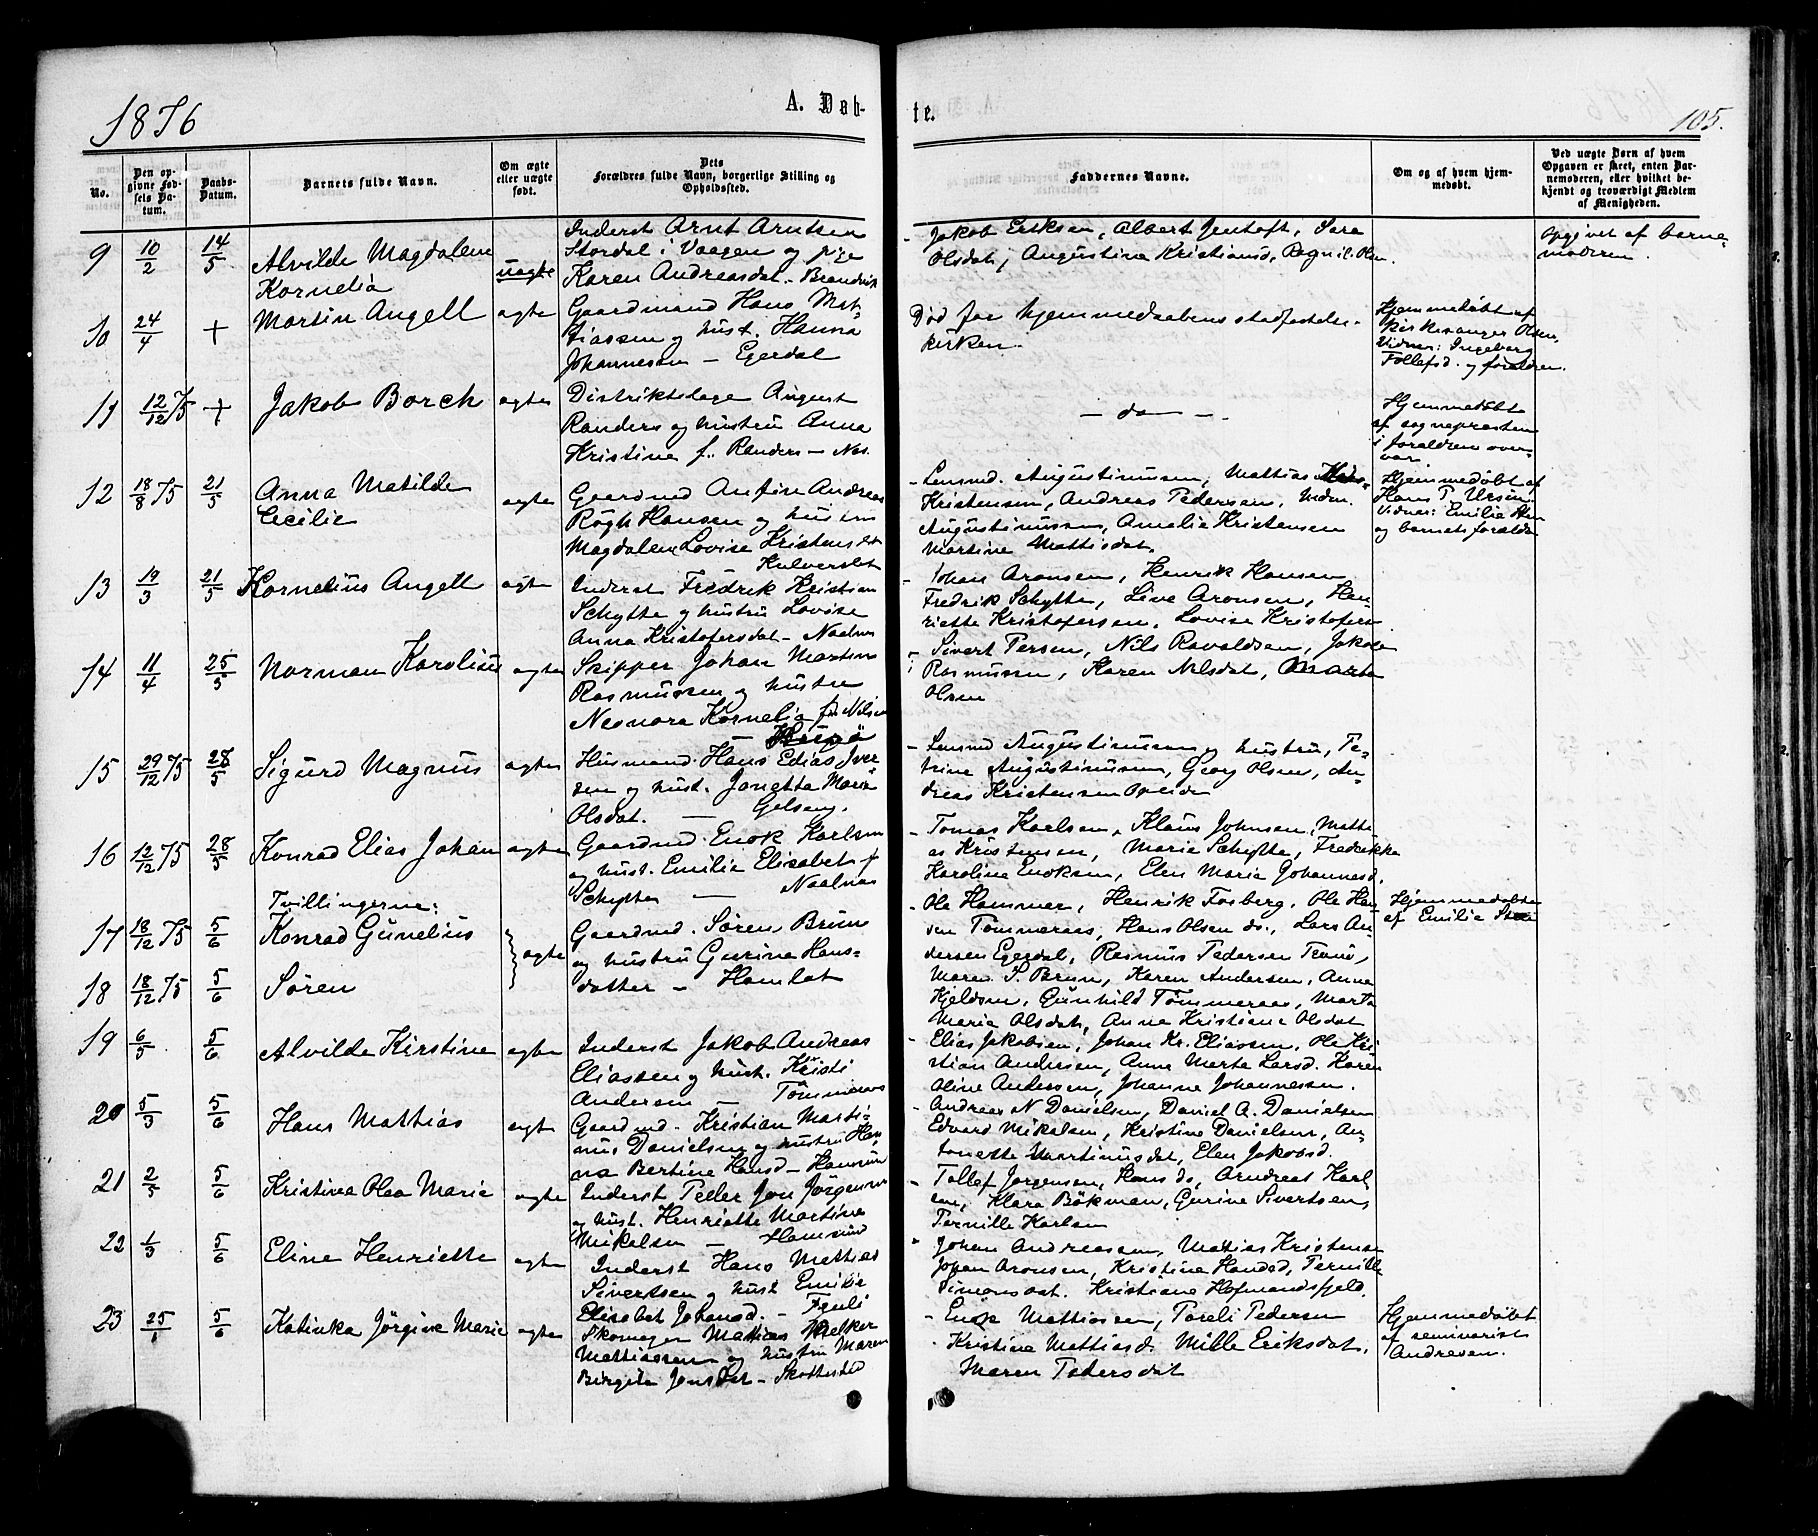 1876
A. Døb-
te.
105.
No.
Den op-
givne Fød-
sels Da-
tum.
Daabs-
Datum.
Barnets fulde Navn.
Om ægte
eller uægte
født.
Dets
Forældres fulde Navn, borgerlige Stilling og
Opholdssted.
Faddernes Navne.
Om og af hvem hjem-
medøbt.
Ved uægte Børn af hvem
Opgaven er skeet, enten Bar-
nemoderen, eller hvilket be-
kjendt og troværdigt Medlem
af Menigheden.
9 10/2 14/5 Alvilde Magdalene
Kornelia
uægte
Inderst Arnt Arntsen
Stordal i Vaagen og pige
Karen Andreasdat. Brendvik
Jakob Eriksen, Albert Jentoft, Sara
Olsdat, Augustina Kristiansd, Ragnil. Olsen
opgivet af barne-
moderen.
10 24/4 + Martin Angell ægte
Gaardmand Hans Mat-
tiassen og hust. Hanna
Johannessen – Egerdal
Død før hjemmedaabens stadfestelse i
kirken.
Hjemmedøbt af
Olsen,
Vidner: Ingeborg
Tollefsd. og forældren.
11 12/12 75 + Jakob Borch ægte
Distriktslæge August
Randers og hustru Anna
Kristine f. Randers – Næs.
– do –
Hjemmedøbt
af sognepresten
i forældren over-
vær
12 18/8 75 21/5 Anna Matilde
Cecilie
ægte
Gaardmd Anfin Andreas
Røgh Hansen og hustru
Magdalena Lovise Kristensdt
Kulverslet
Lensmd. Augustinussen, Mattias
Kristensen, Andreas Pedersen,
Augustinussen, Amalie Kristensen
Martine Mattisdat.
Hjemmedøbt af
Hans P. Ursin
Vidner: Emilie
og barnets foreldre
13 19/3 21/5 Kornelius Angell ægte
Inderst Fredrik Kristian
Schytte og hustru Lovise
Anna Kristofersdat – Naalnes
Johan Aronsen, Henrik Hansen
Fredrik Schytte, Live Aronsen, Hen-
riette Kristofersen, Lovise Kristofers
14 11/4 25/5 Norman Karolius ægte
Skipper Johan Martin
Rasmussen og hustru
Neonora Kornelia f. Nilsen
Sivert Persen, Nils Ravaldsen, Jakob
Rasmussen, Karen Nilsdat, Marta
Olsen
15 29/12 75 28/5 Sigurd Magnus ægte
Husmand Hans Edias Iver-
sen og hust. Jonetta Maria
Olsdat. – Gilseng.
Lensmd Augustinussen og hustru, Pe-
trine Augustinussen, Georg Olsen, An-
dreas Kristensen Opeide
16 12/12 75 28/5 Konrad Elias Johan ægte
Gaardmd. Enok Karlsen
og hust. Emilie Elisabet f.
Schytte – Naalnæs
Tomas Karlsen, Klaus Johnsen, Matti-
as Kristensen, Marie Schytte, Fredrikke
Karoline Enoksen, Elen Maria Johannesd.
Tvillingerne:
17 18/12 75 5/6 Konrad Gunelius
ægte
18 18/12 75 5/6 Søren
Gaardmd. Søren Brun
og hustru Gurine Hans-
datter – Hamlot
Ole Hammer, Henrik Forsberg, Ole Han-
sen Tømmeraas, Hans Olsen do., Lars An-
dersen Egerdal, Rasmus Pedersen Tranø,
Maren S. Brun, Karen Andersen, Anna
Kjeldsen, Gunhild Tømmeraas, Marta
Maria Olsdat, Anne Kristiane Olsdat
Hjemmedøbte
af Emilie
19 6/5 5/6 Alvilde Kirstine ægte
Inderst Jakob Andreas
Eliassen og hust. Kristi
Andersen – Tømmeraas
Elias Jakobsen, Johan Kr. Eliassen, Ole Kri-
stian Andersen, Anne Marta Larsd. Karen
Oline Andersen, Johanne Johannessen.
20 5/3 5/6 Hans Mattias ægte
Gaardmd. Kristian Marti-
nus Danielsen og hustru Han-
na Bertine Hansd – Hamsund
Andreas N Danielsen, Daniel A. Danielsen
Edvard Mikalsen, Kristine Danielsen, An-
tonette Martinusdat, Elen Jakobsd.
21 2/5 5/6 Kristina Olea Marie ægte
Inderst Peder Jon Jørgensen
og hust. Henriette Martina
Mikelsen – Hamsund
Tollef Jørgensen, Hans do, Andreas Karl
sen, Klara Bökman, Gurine Sivertsen,
Pernille Karlsen
22 1/3 5/6 Eline Henriette ægte
Inderst Hans Mattias
Sivertsen og hust Emilie
Elisabet Johansd. –
Johan Andreassen, Mattias Kristensen
Johan Aronsen, Kristine Hansd, Pernille
Simonsdat. Kristiane Hofmandsfjeld.
23 25/1 5/6 Katinka Jørgine Marie ægte
Skomager Mattias
Mattiassen og hustru Maren
Birgite Jonsdat – Skottestad
Enok Mattissen, Pareli Pedersen
Kristine Mattiasd. Mille Eriksdat,
Maren Pedersdat
Hjemmedøbt
af seminarist
Andresen.